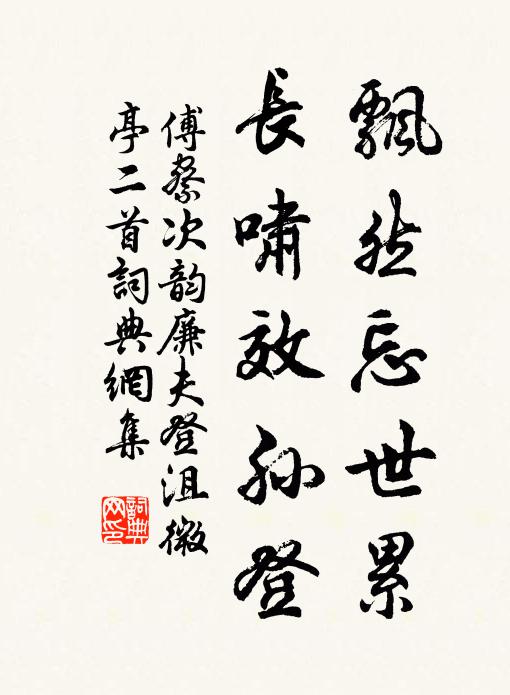 飄然忘世累
長嘯效孙登
傅察次韵廉夫登沮微
亭二首詞典網集
詞典
网印